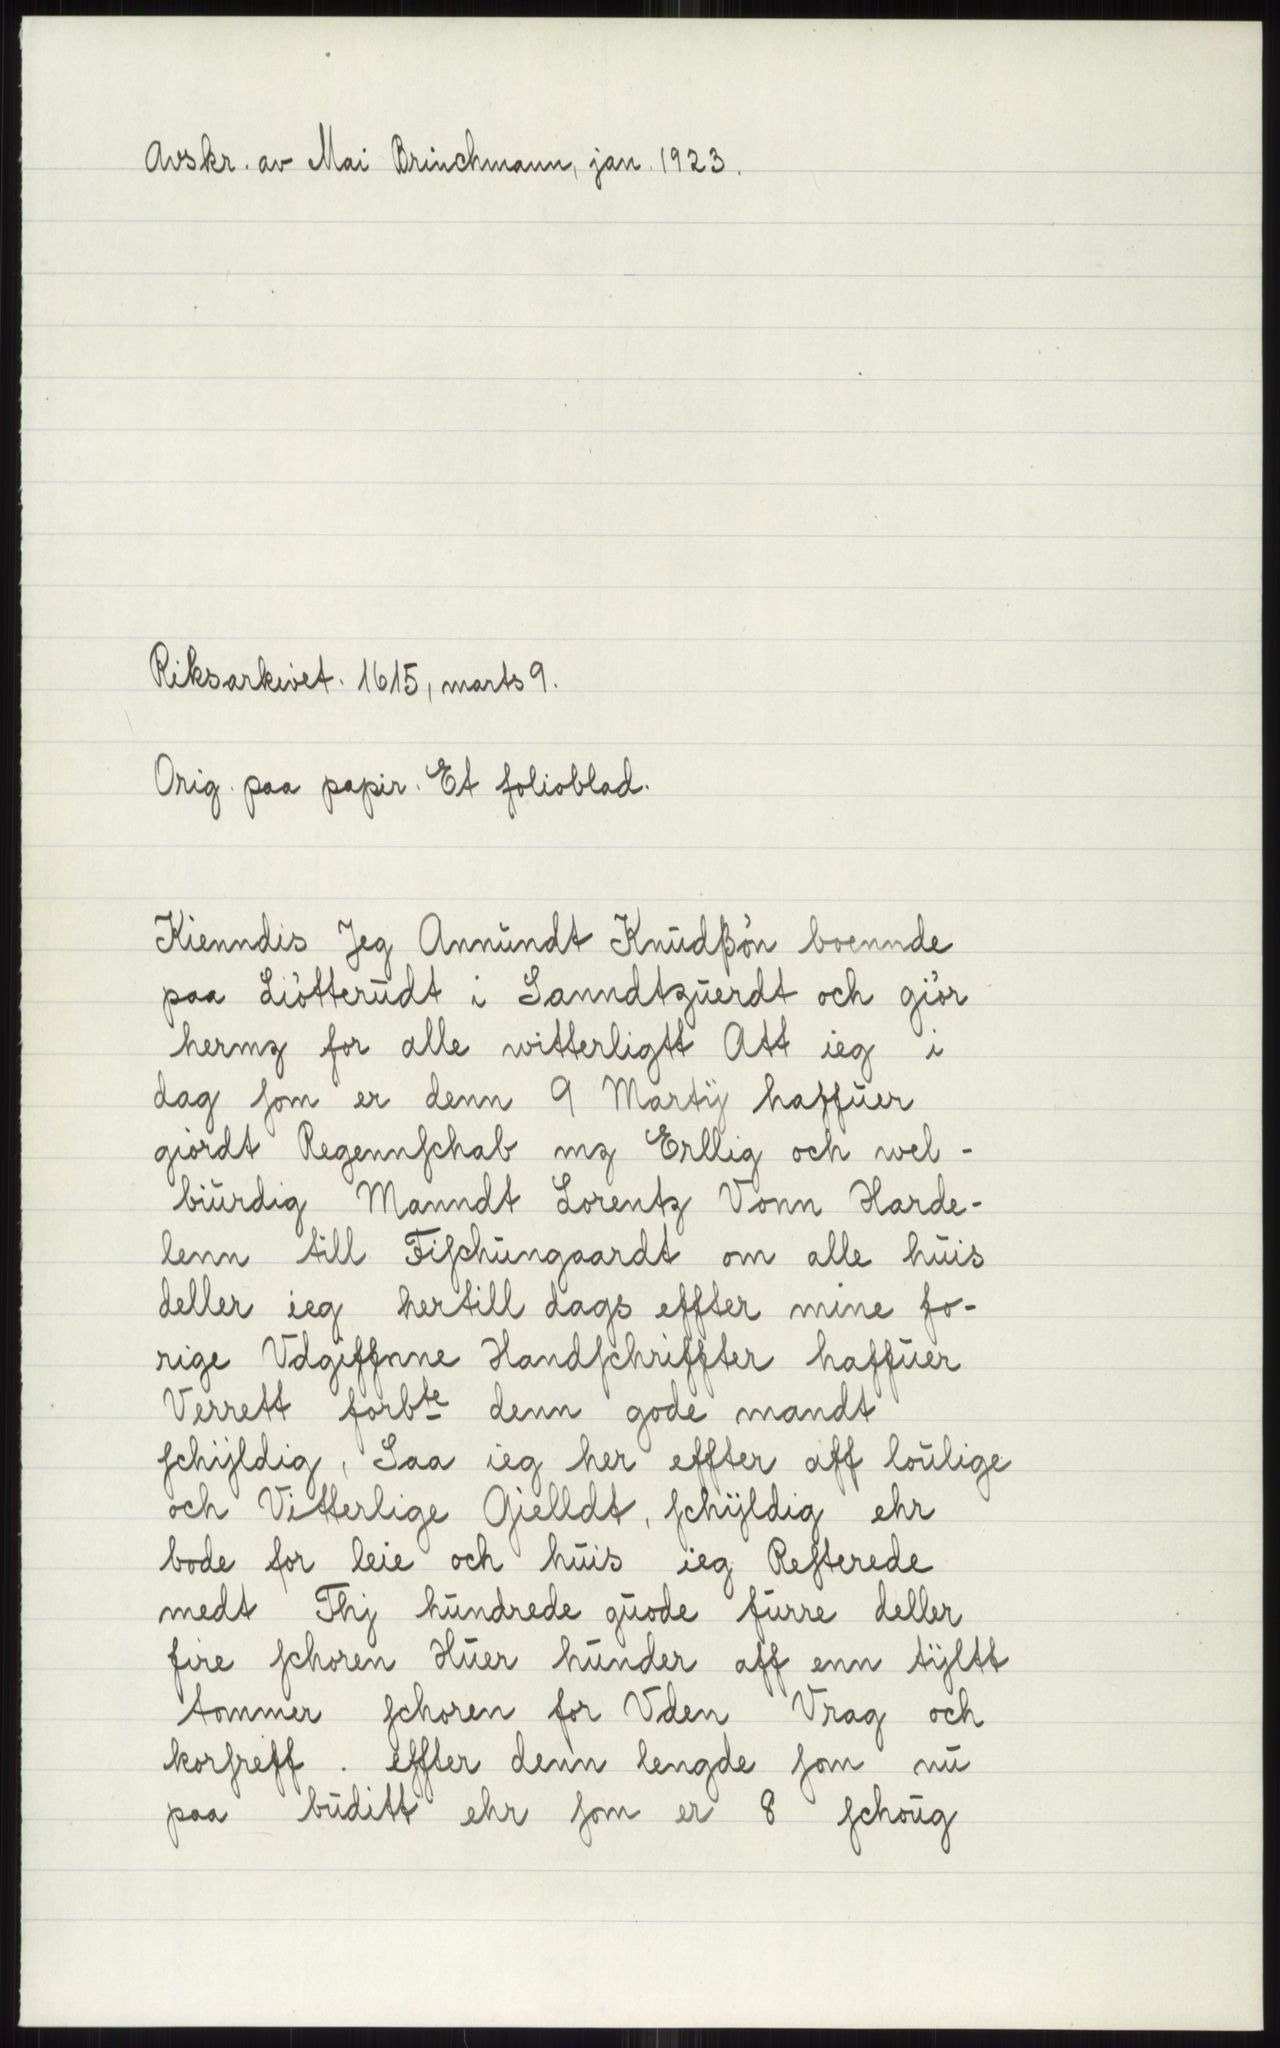 Avskr. av Mai Brinchmann, jan. 1923.
Riksarkivet. 1615, marts 9.
Orig. paa papir. Et folioblad.
Kienndis Jeg Annundt Knudßøn boennde
paa Liøtterudt i Sanndtzuerdt och giør
hermz for alle witterligtt Att ieg i
dag som er denn 9 Martij haffuer
giordt Regennschab mz Erllig och wel-
biurdig Manndt Lorentz Vonn Harde-
lenn till Fischungaardt om alle huis
deller ieg hertill dags effter mine fo-
rige Vdgiffnne Handschriffter haffuer
Verrett forbte denn gode mandt
schijldig, Saa ieg her effter aff loulige
och Vitterlige Gjelldt, schijldig ehr
bode for leie och huis ieg Resterede
medt Thj hundrede guode furre deller
fire schoren Huer hunder aff enn tijltt
tommer schoren for Vden Vrag och
korsreff. effter denn lengde som nu
paa buditt ehr som er 8 schoug